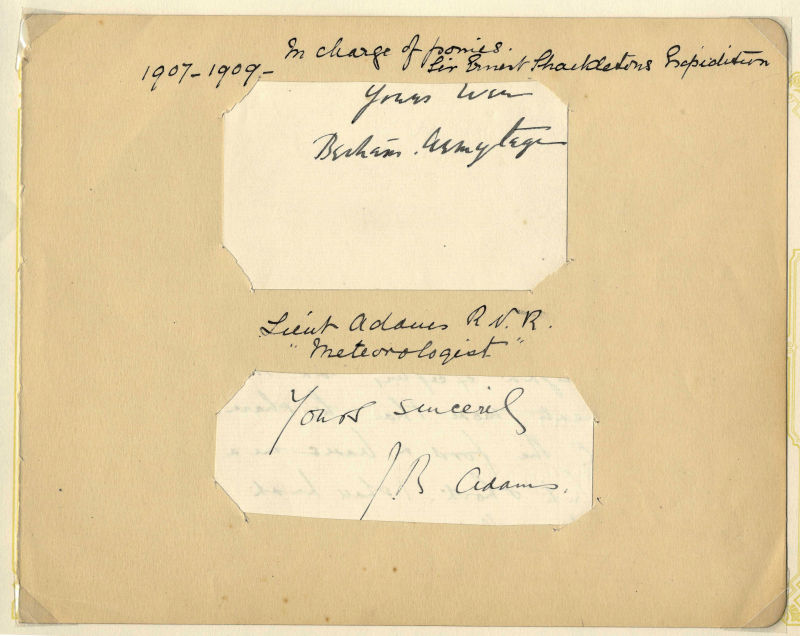 In charge of ponies.
1907-1909- Sir Ernest Shackletons Expidition
Yours
Bertram Armytage
Lieut Adams R.N.R.
"Meteorologist"
Yours sincerely
J B Adams.